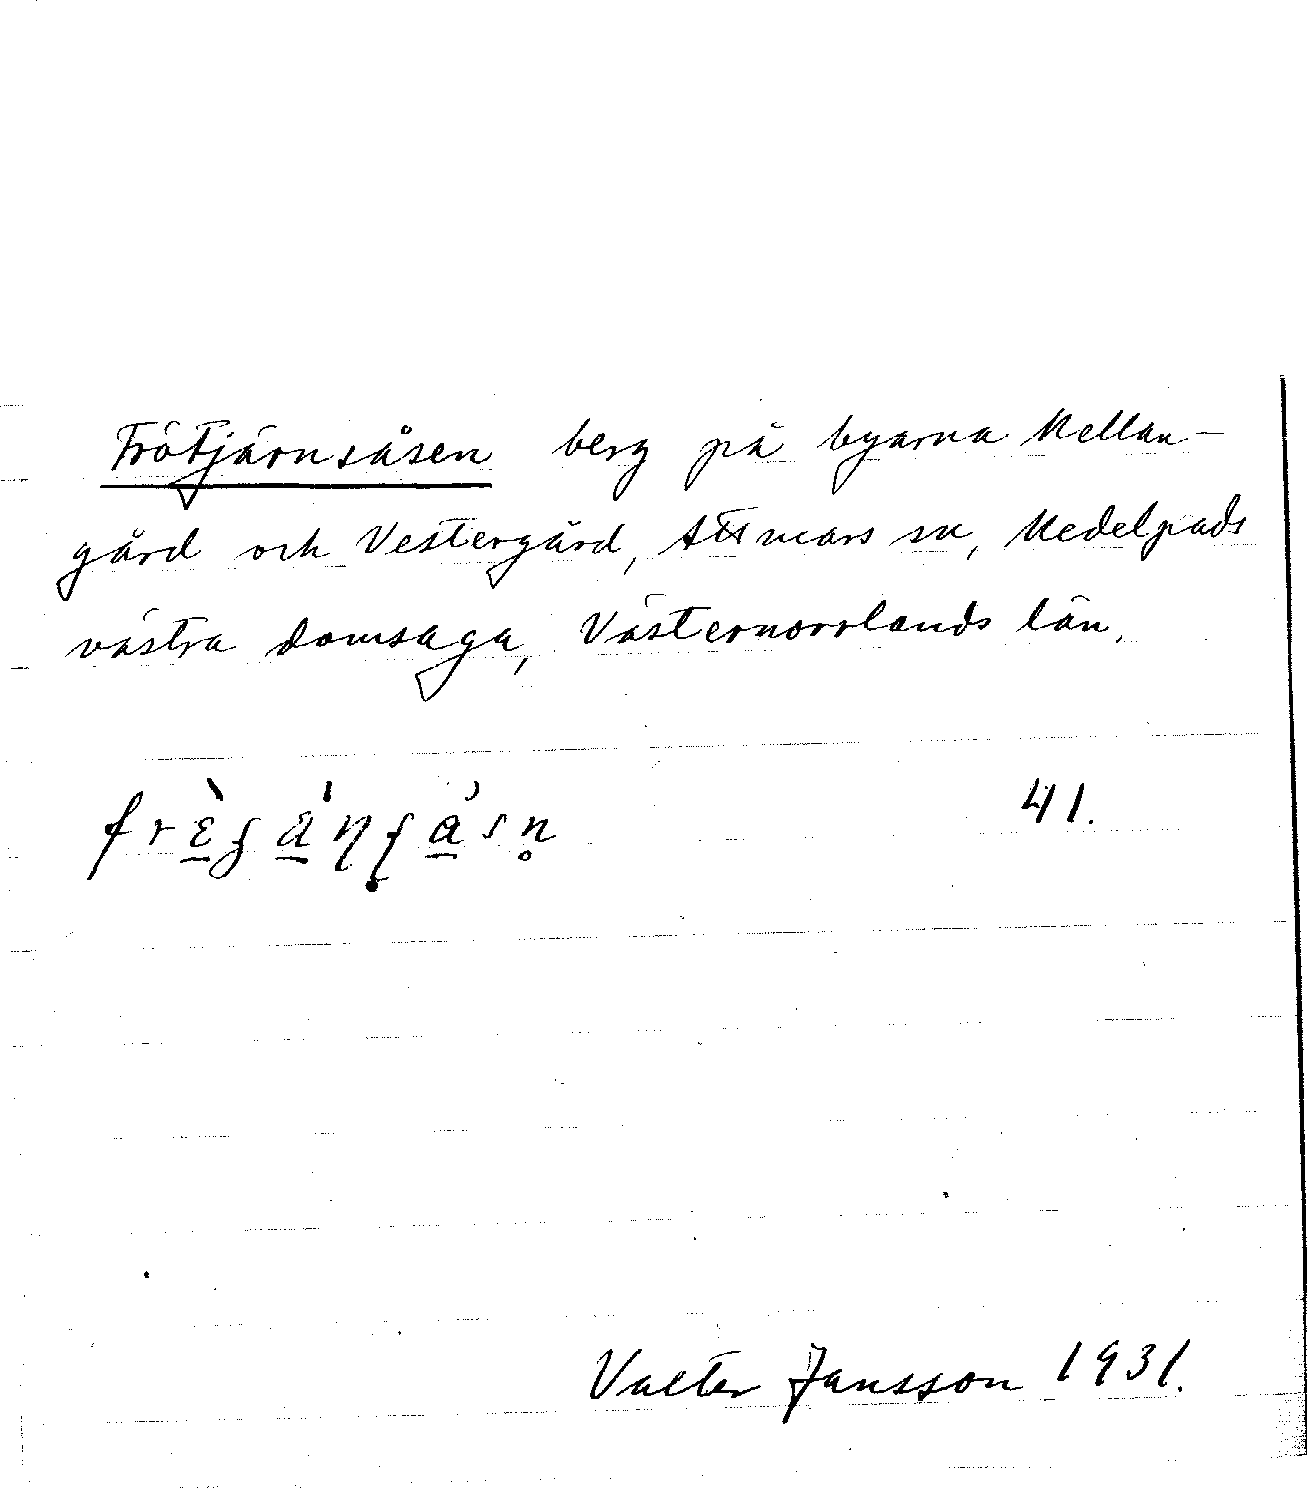 Frötjärnsåsen berg på byarna Mellan-
gård och Vestergård, Attmars sn, Medelpads
västra domsaga, Västernorrlands län.
41.
Valter Jansson 1931.